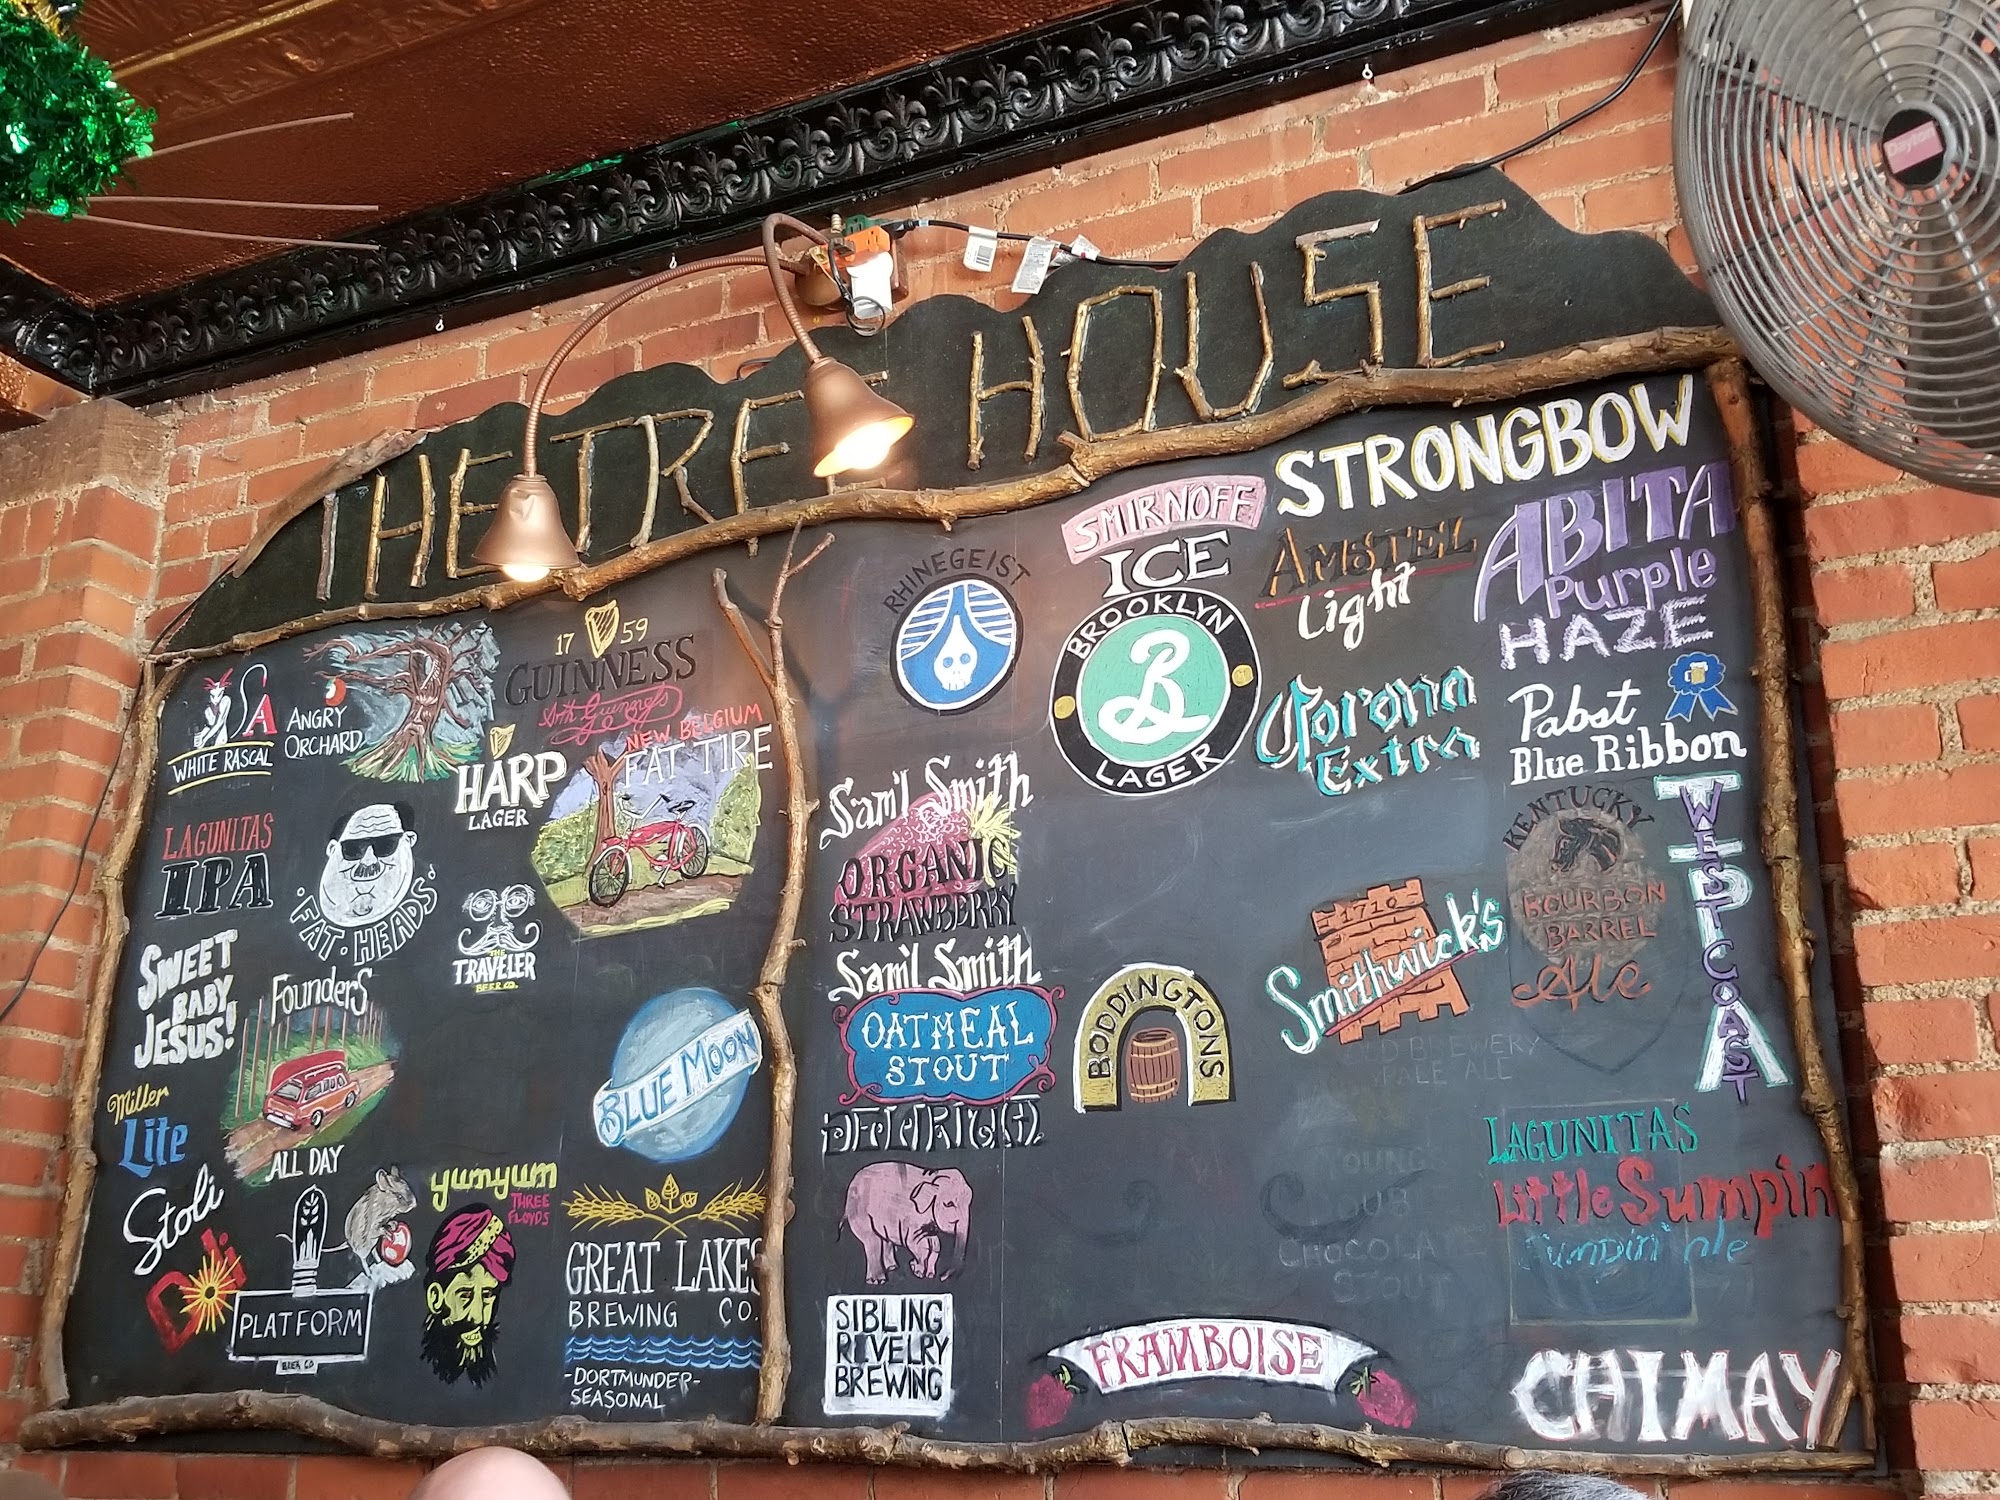 THE TREE HOUSE
Dayton
WHITE RASCAL
ANGRY
ORCHARD
17 59
GUINNESS
HARP
LAGER
NEW BELGIUM
FAT TIRE
LAGUNITAS
IPA
FAT·HEADS'
THE
TRAVELER
BEER CO.
SWEET
BABY
JESUS!
Founders
ALL DAY
BLUE MOON
Miller
Lite
Stoli
PLATFORM
BEER CO
yumyum
THREE
FLOYDS
GREAT LAKES
BREWING CO.
-DORTMUNDER-
SEASONAL
RHINEGEIST
SMIRNOFF
ICE
BROOKLYN
B
LAGER
STRONGBOW
AMSTEL
Light
ABITA
Purple
HAZE
Corona
Extra
Pabst
Blue Ribbon
Sam'l Smith
ORGANIC
STRAWBERRY
Sam'l Smith
OATMEAL
STOUT
DELIRIUM
SIBLING
RIVELRY
BREWING
BODDINGTONS
1710
Smithwick's
KENTUCKY
BOURBON
BARREL
Ale
WEST COAST
IPA
CHOCOLATE
STOUT
LAGUNITAS
Little Sumpin
FRAMBOISE
CHIMAY